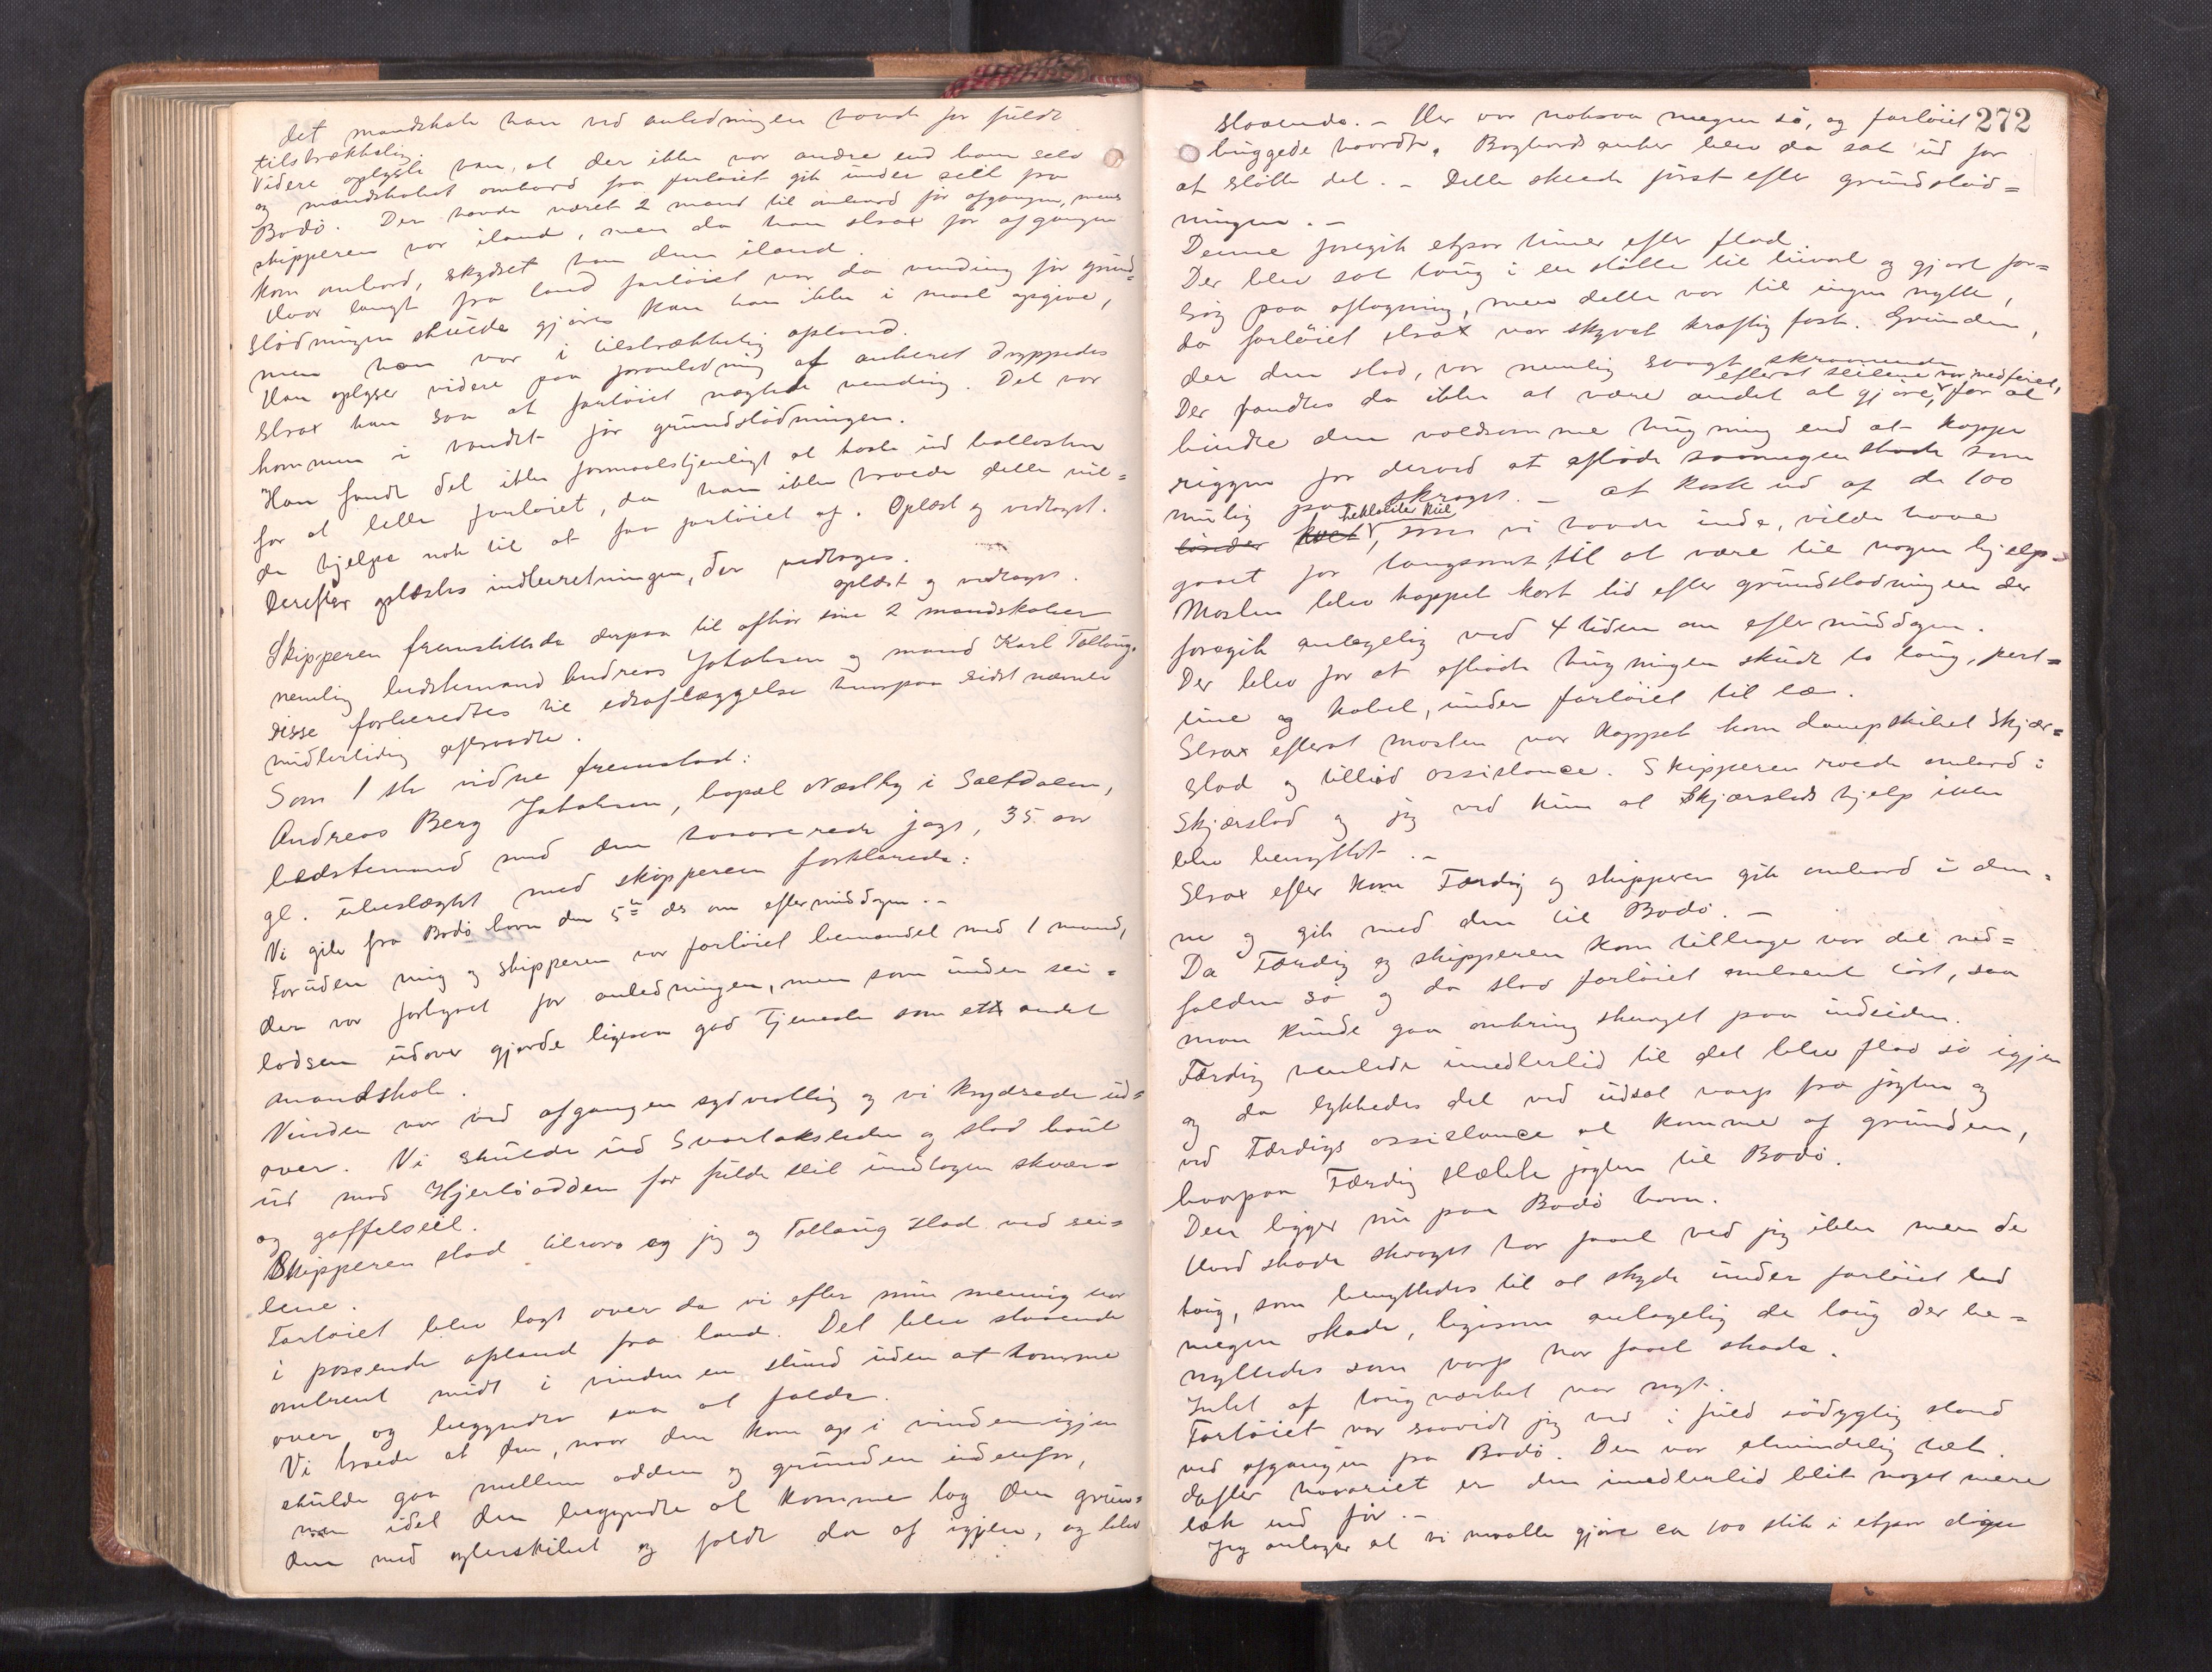 det mandskab han ved anledningen havde for fuldt
tilstrækkelig.
Videre oplyste han, at der ikke var andre end ham selv
og mandskabet ombord fra fartøiet gik under seil fra
Bodø. Der havde været 2 mand til ombord før afgangen, mens
skipperen var iland, men da han strax før afgangen
kom ombord, skydset han dem iland.
Hvor langt fra land fartøiet var da vending før grund=
stødningen skulde gjøres kan han ikke i maal opgive,
men han var i tilstrækkelig afstand.
Han oplyser videre paa foranledning at ankeret droppedes
strax han saa at fartøiet nægtede vending. Det var
kommen i vandet før grundstødningen.
Han fandt det ikke formaalstjenligt at kaste ud ballasten
for at lette fartøiet, da han ikke troede dette vil=
de hjelpe nok til at faa fartøiet af. Oplæst og vedtaget.
Derefter oplæstes indberetningen, der vedtoges.
oplæst og vedtaget.
Skipperen fremstillede derpaa til afhør sine 2 mandskaber
nemlig bedstemand Andreas Jakobsen og mand Karl Tollaug.
Disse forberedtes til edsaflæggelse hvorpaa sidst nævnte
midlertidig aftraadte.
Som 1ste vidne fremstod:
Andreas Berg Jakobsen, bopæl Næstby i Saltdalen,
bedstemand med den havarerede jagt, 35 aar
gl. ubeslægtet med skipperen forklarede:
Vi gik fra Bodø havn den 5te ds om eftermiddagen. -
Foruden mig og skipperen var fartøiet bemandet med 1 mand,
der var forhyret for anledningen, men som under sei=
ladsen udover gjorde ligesaa god Tjeneste som ett andet
mandskab.
Vinden var ved afgangen sydvestlig og vi krydsede ud=
over. Vi skulde ud Svartoksleden og stod baut
ud mod Hjertøodden for fulde seil undtagen skvær=
og gaffelseil.
Skipperen stod tilrors og jeg og Tollaug stod ved sei=
lene.
Fartøiet blev lagt over da vi efter min mening var
i passende afstand fra land. Det blev staaende
omtrent midt i vinden en stund uden at komme
over og begyndte saa at falde.
Vi troede at den, naar den kom op i vinden igjen
skulde gaa mellem odden og grunden indenfor,
men idet den begyndte at komme tog den grun=
den med agterskibet og faldt da af igjen, og blev
272
staaende. - Der var noksaa megen sø, og fartøiet
huggede haardt. Bagbords anker blev da sat ud for
at støtte det. - Dette skede først efter grundstød=
ningen. -
Denne foregik etpar timer efter flod.
Der blev sat taug i en støtte til luvart og gjort for=
søg paa aftagning, men dette var til ingen nytte,
da fartøiet strax var skyvet kraftig fast. Grunden,
der den stod, var nemlig svagt skraanende
efterat seilene var medfiret,
Der fandtes da ikke at være andet at gjøre, for at
hindre den voldsomme hugning end at kappe
riggen for derved at afbøde saamegen skade som
mulig paa skroget. - At kaste ud af de 100
hektoliter kul
tønder kul, som vi havde inde, vilde have
gaaet for langsomt til at være til nogen hjelp. -
Masten blev kappet kort tid efter grundstødningen der
foregik antagelig ved 4 tiden om eftermiddagen.
Der blev for at afbøde hugningen skudt to taug, pert=
line og kabel, under fartøiet til læ.
Strax efterat masten var kappet kom dampskibet Skjær=
stad og tilbød assistance. Skipperen roede ombord i
Skjærstad og jeg ved kun at Skjærstads hjelp ikke
blev benyttet. -
Strax efter kom Færdig og skipperen gik ombord i den=
ne og gik med den til Bodø. -
Da Færdig og skipperen kom tilbage var det ned=
falden sø og da stod fartøiet omtrent tørt, saa
man kunde gaa omkring skroget paa indsiden.
Færdig ventede imedlertid til det blev flod sø igjen
og da lykkedes det ved udsat varp fra jagten og
ved Færdigs assistance at komme af grunden,
hvorpaa Færdig slæbte jagten til Bodø.
Den ligger nu paa Bodø havn.
Hvad skade skroget har faaet ved jeg ikke men de
taug, som benyttedes til at skyde under fartøiet led
megen skade, ligesom antagelig de taug der be=
nyttedes som varp har faaet skade.
Intet af taugværket var nyt.
Fartøiet var saavidt jeg ved i fuld sødygtig stand
ved afgangen fra Bodø. Den var almindelig tæt.
Efter havariet er den imedlertid blit noget mere
læk end før. -
Jeg antager at vi maatte gjøre ca 100 stik i etpar dager